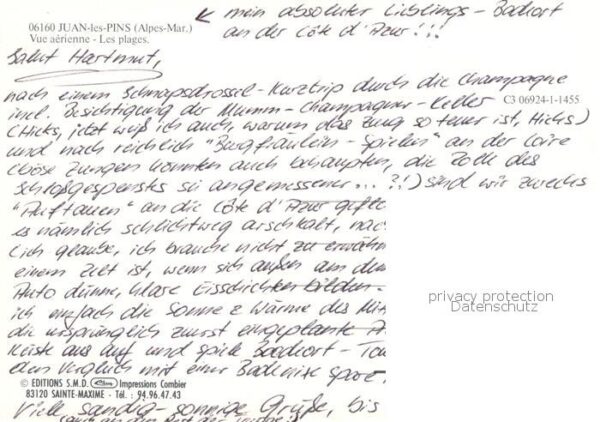 06160 JUAN-les-PINS (Alpes-Mar.)
Vue aérienne - Les plages.
mein absoluter Lieblings-Badeort
an der Côte d'Azur!!!
Salut Hartmut,
nach einem Schnapsdrossel-Kurztrip durch die Champagne
incl. Besichtigung der Mumm-Champagner-Keller
C3 06924-1-1455
(Hicks, jetzt weiß ich auch, warum das Zeug so teuer ist, Hicks)
und nach reichlich "Burgfräulein-Spielen" an der Loire
(böse Zungen könnten auch behaupten, die Rolle des
Schloßgespensts sei angemessener...?!) sind wir zwecks
"Auftauen" an die Côte d'Azur
es nämlich schlichtweg arschkalt,
(ich glaube, ich brauche nicht zu
einem Zelt ist, wenn sich außen am
Auto dünne, klare Eisschichten bilden
ich einfach die Sonne & Wärme des
die ursprünglich zuerst eingeplante
Küste aus auf und spiele Badeort-
den Vergleich mit einer
privacy protection
Datenschutz
© EDITIONS S.M.D. Impressions Combier
83120 SAINTE-MAXIME - Tél. : 94.96.47.43
Viele sandig-sonnige Grüße, bis